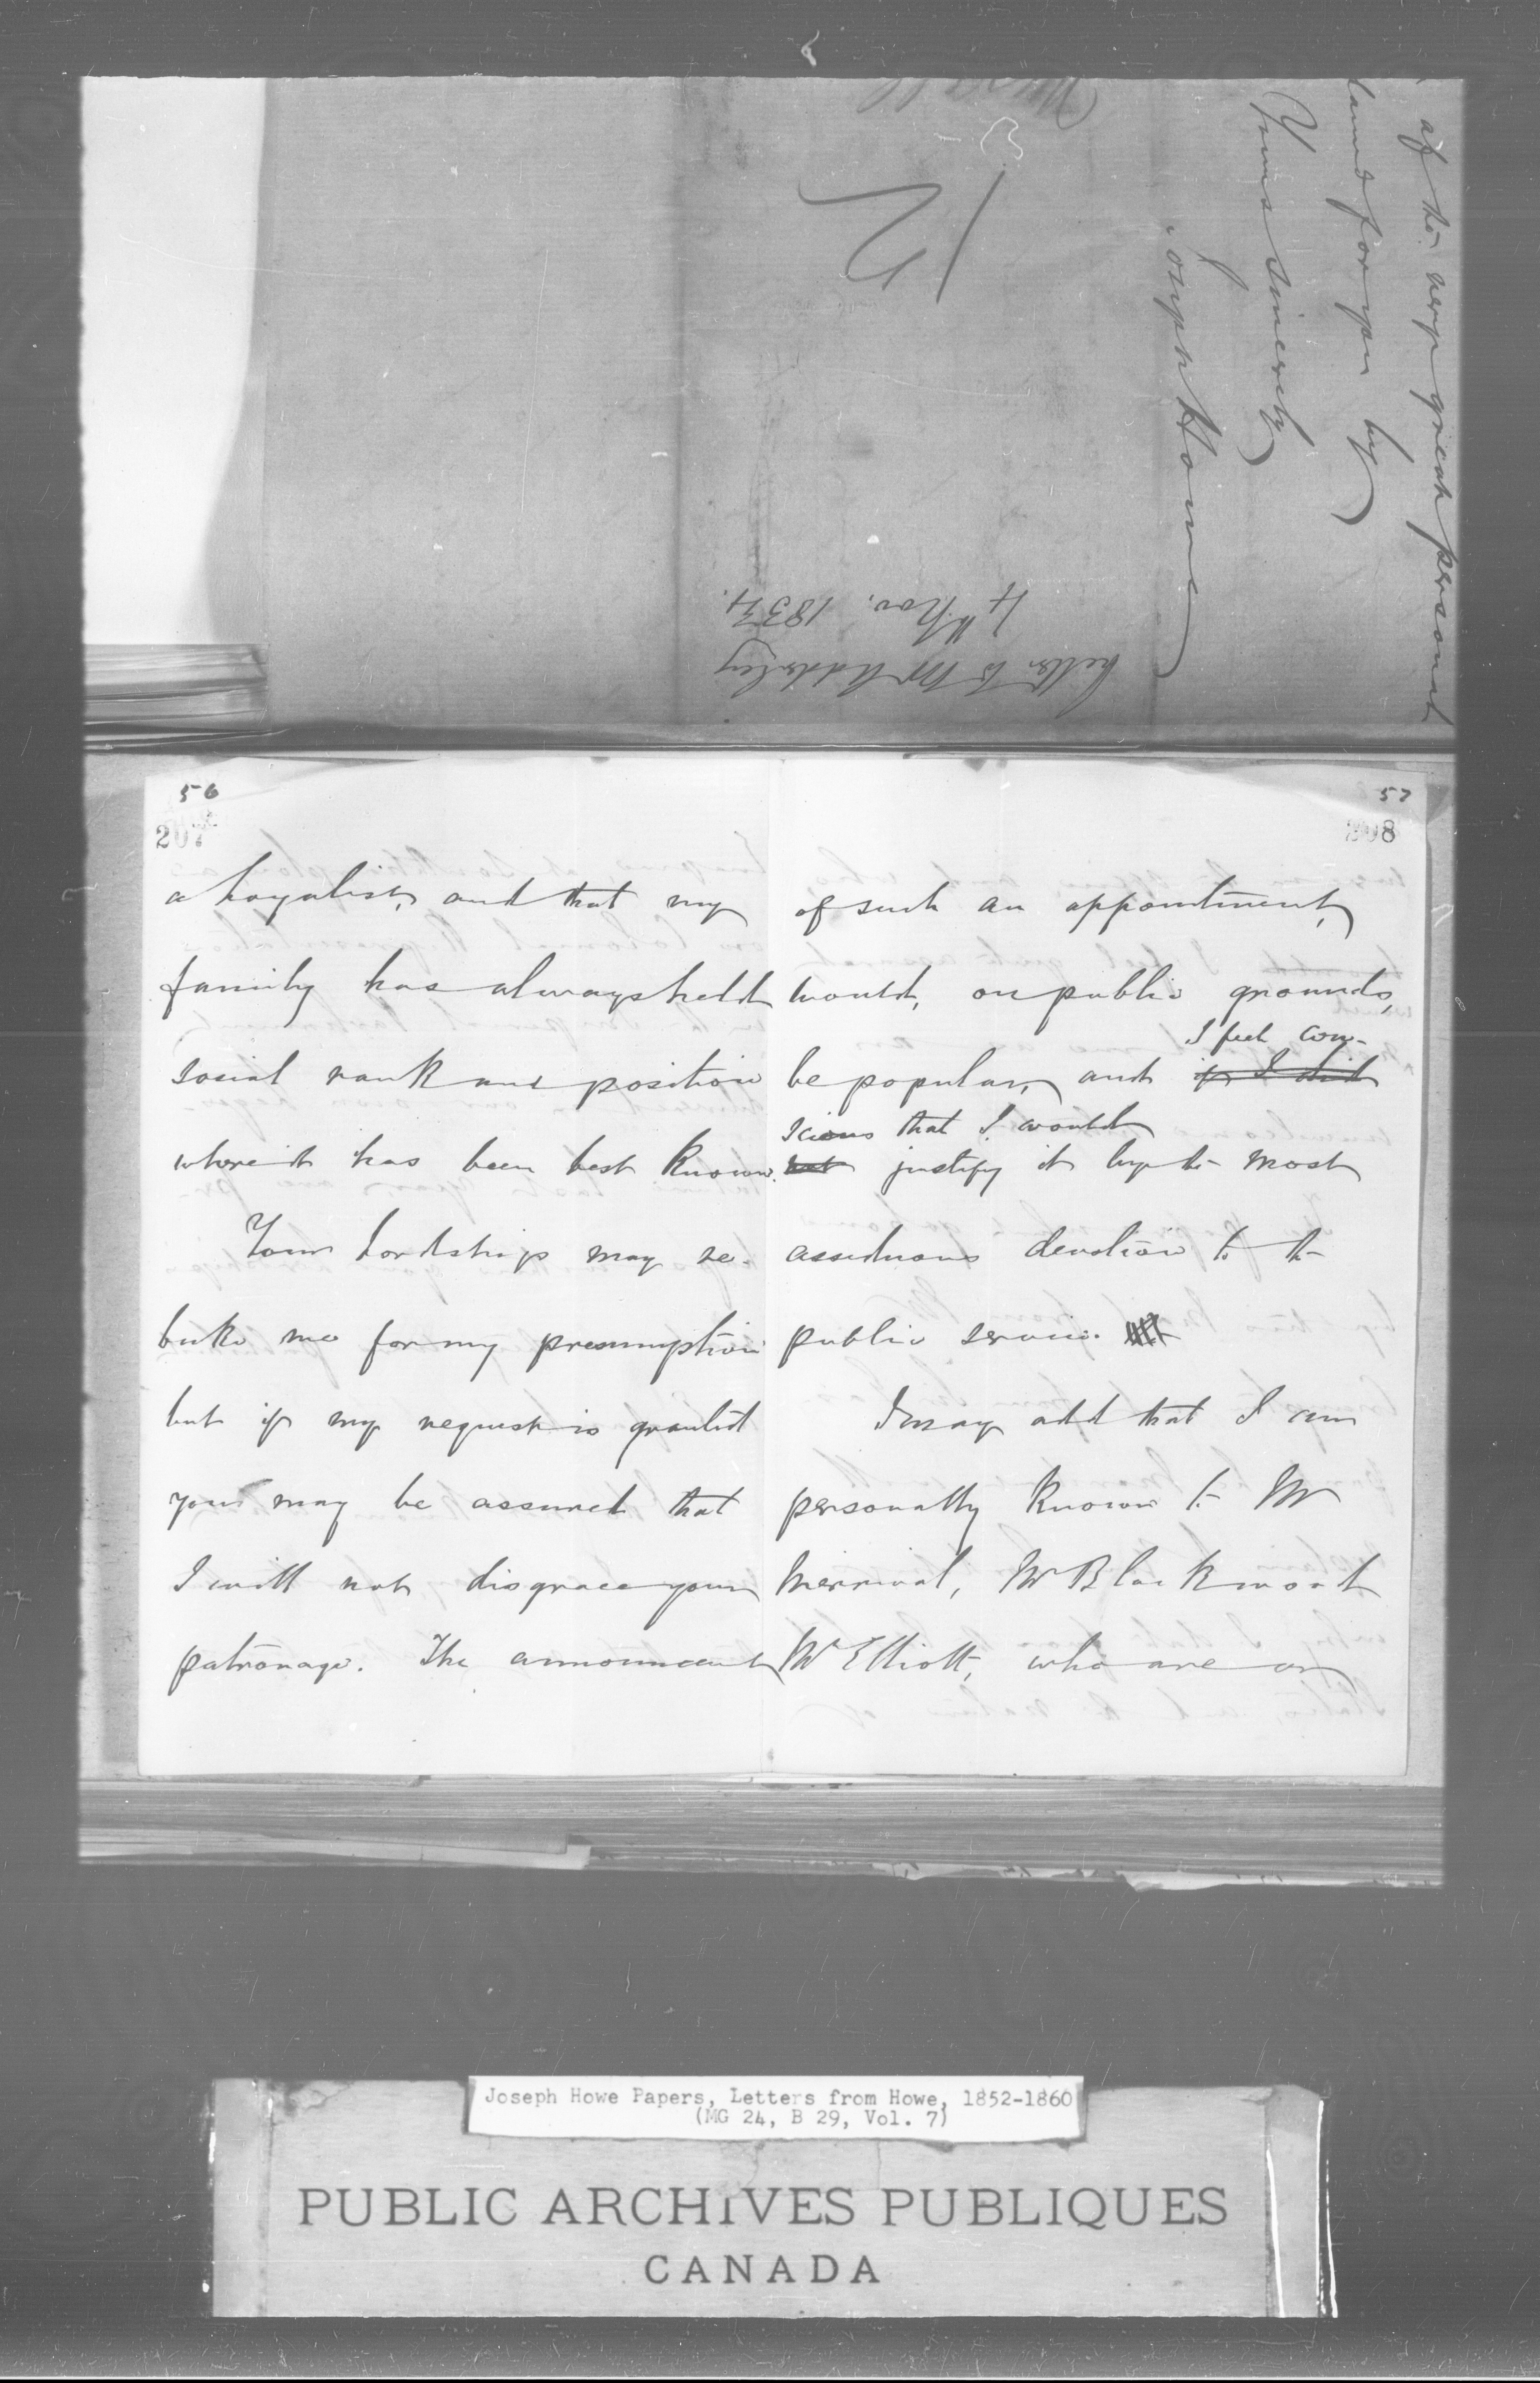 of the very great personal
for you by
Yours sincerely
Joseph Howe
Letter to Mr Adderley
4th Nov. 1834.
56
207
a Loyalist, and that my
family has always held
social rank and position
where it has been best known.
Your Lordship may re-
buke me for my presumption
but if my request is granted
you may be assured that
I will not disgrace your
patronage. The announcement
57
208
of such an appointment,
would, on public grounds,
I feel con-
be popular, and if I did
scious that I would
not justify it by the most
assiduous devotion to the
public service.
I may add that I am
personally known to Mr
Merrival, Mr Blackwood
Mr Elliott, who are or
Joseph Howe Papers, Letters from Howe, 1852-1860
(MG 24, B 29, Vol. 7)
PUBLIC ARCHIVES PUBLIQUES
CANADA